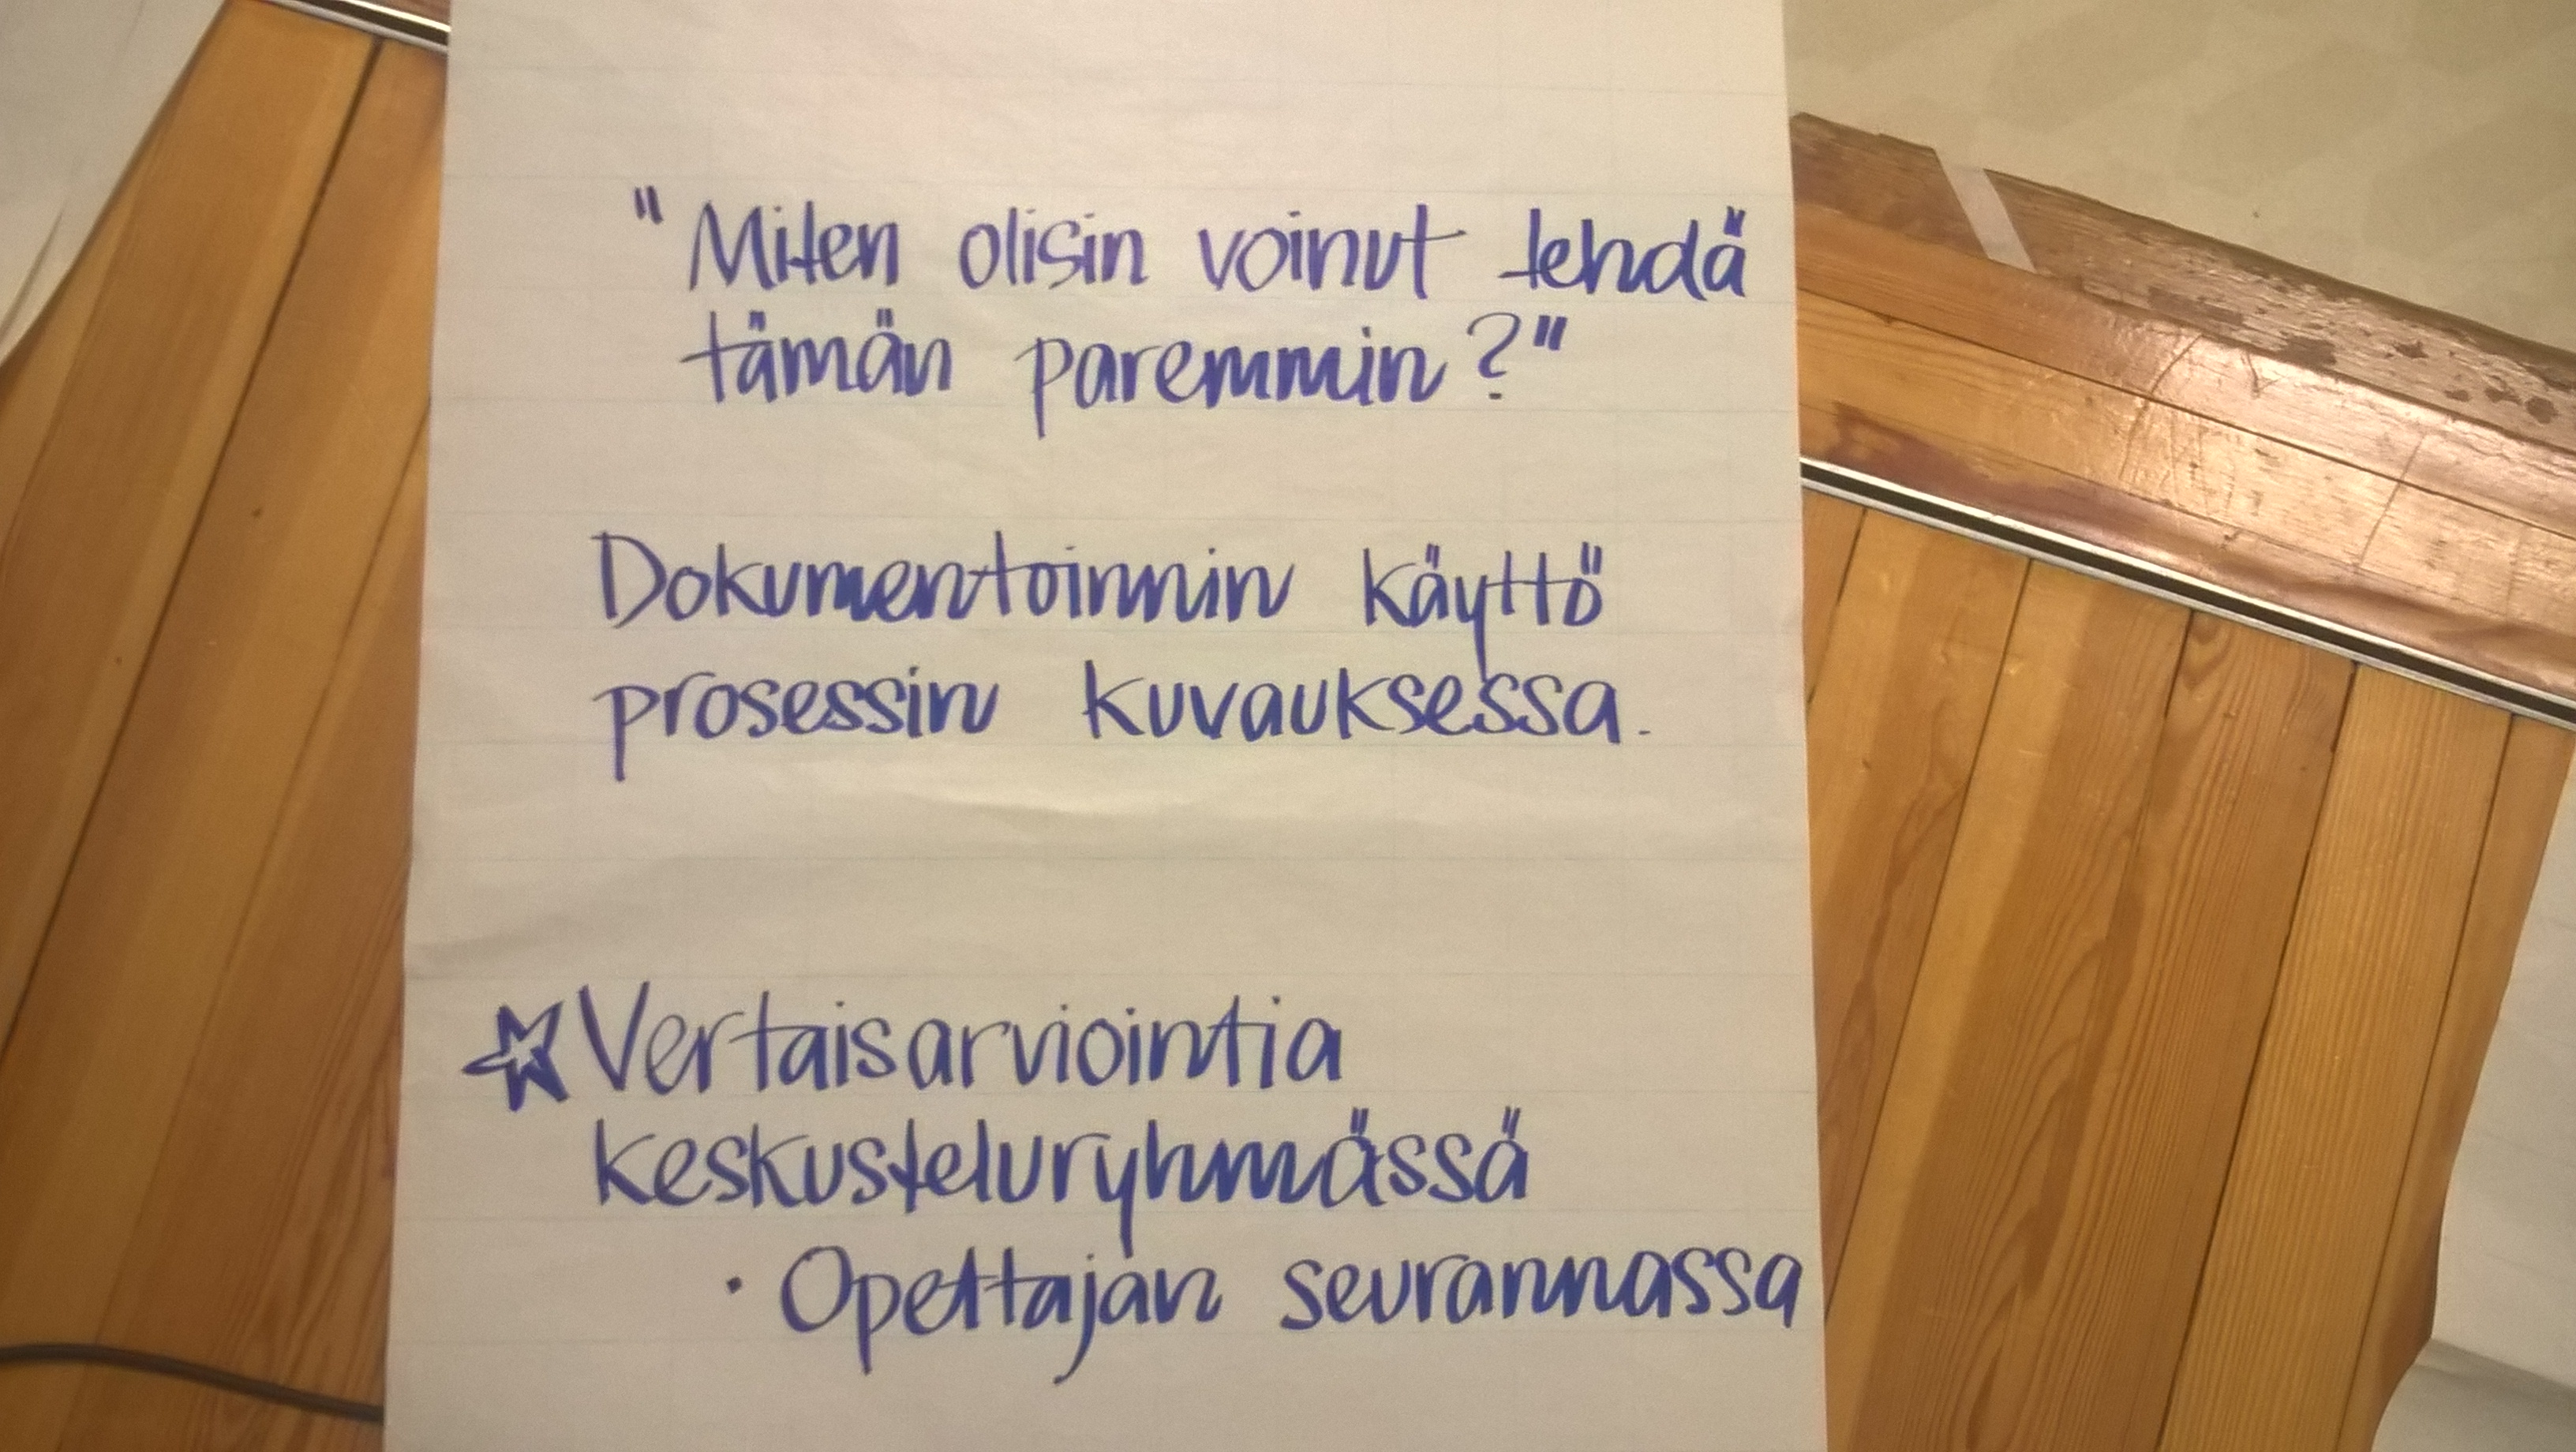 "Miten olisin voinut tehdä
tämän paremmin?"
Dokumentoinnin käyttö
prosessin kuvauksessa.
☆ Vertaisarviointia
keskusteluryhmässä
· Opettajan seurannassa